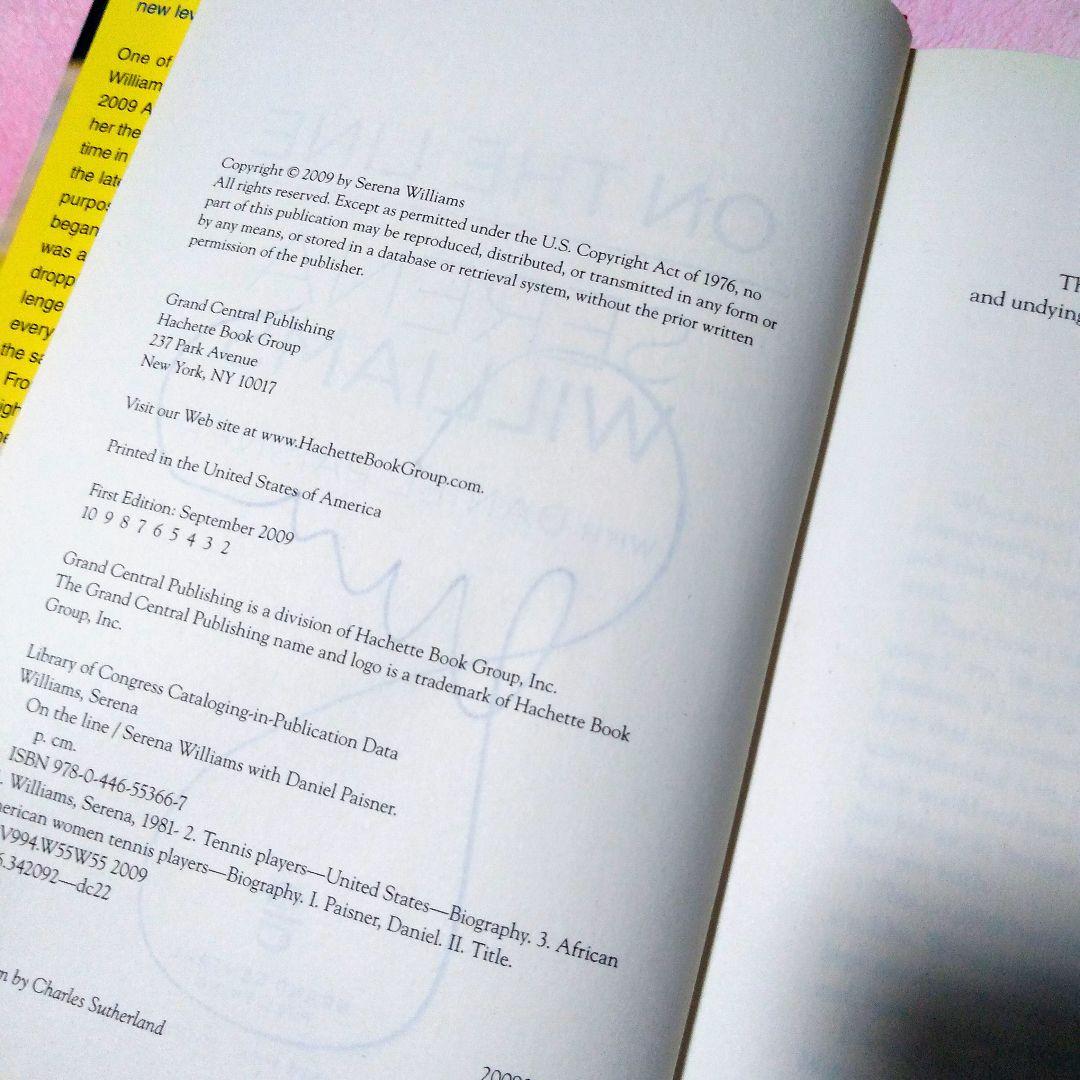 new lev
One of
William
2009 A
her the
time in
the late
purpos
began
was a
dropp
lenge
every
the sa
Fro
igh
Copyright © 2009 by Serena Williams
All rights reserved. Except as permitted under the U.S. Copyright Act of 1976, no
part of this publication may be reproduced, distributed, or transmitted in any form or
by any means, or stored in a database or retrieval system, without the prior written
permission of the publisher.
Grand Central Publishing
Hachette Book Group
237 Park Avenue
New York, NY 10017
Visit our Web site at www.HachetteBookGroup.com.
Printed in the United States of America
First Edition: September 2009
10 9 8 7 6 5 4 3 2
Grand Central Publishing is a division of Hachette Book Group, Inc.
The Grand Central Publishing name and logo is a trademark of Hachette Book
Group, Inc.
Library of Congress Cataloging-in-Publication Data
Williams, Serena
On the line / Serena Williams with Daniel Paisner.
p. cm.
ISBN 978-0-446-55366-7
. Williams, Serena, 1981- 2. Tennis players—United States—Biography. 3. African
merican women tennis players—Biography. I. Paisner, Daniel. II. Title.
V994.W55W55 2009
6.342092—dc22
n by Charles Sutherland
Th
and undying